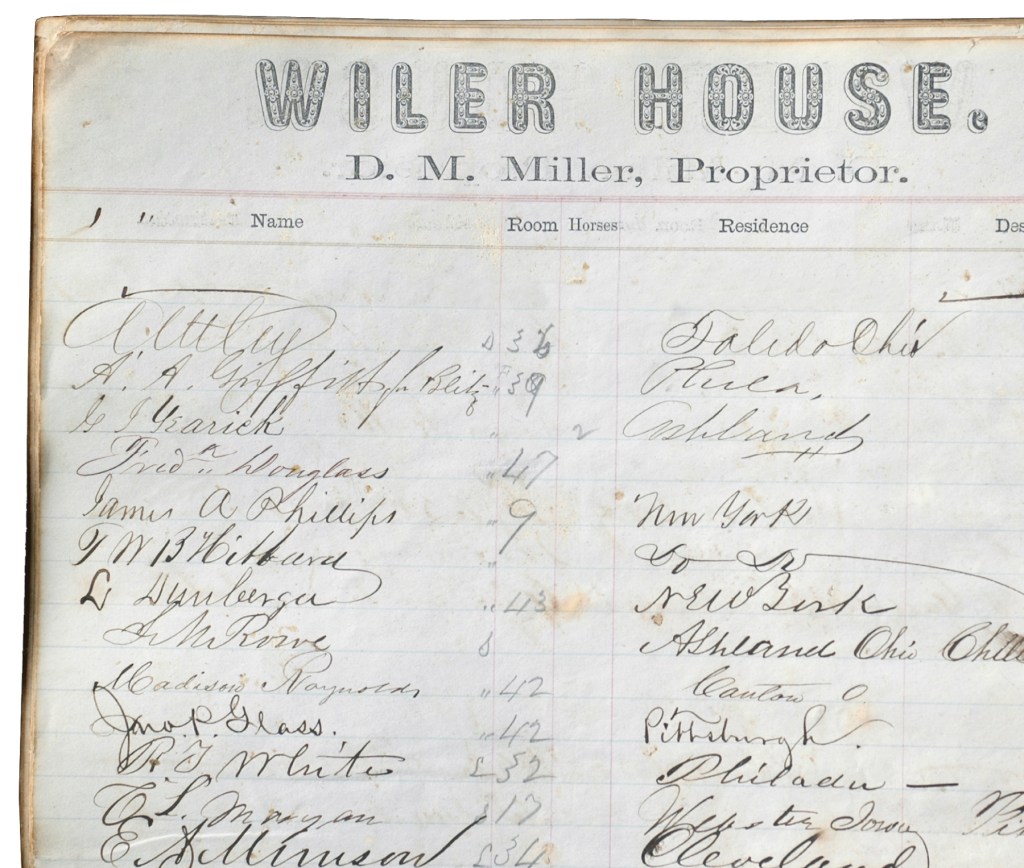 WILER HOUSE.
D. M. Miller, Proprietor.
Name Room Horses Residence Des
36 Toledo Ohio
A. A. Griffith Blitz " 39 Phila.
G I Yearick " 2 Ashland
Fredk Douglass " 47
James A Phillips " 9 New York
T W B Hibbard " Do Do
L " 43 New York
Rowe Ashland Ohio
Madison Raynolds " 42 Canton O
Jno. P. Glass. " 42 Pittsburgh.
R. T White 52 Philada —
L. Morgan 17 Webster Iowa
E 34 Cleveland